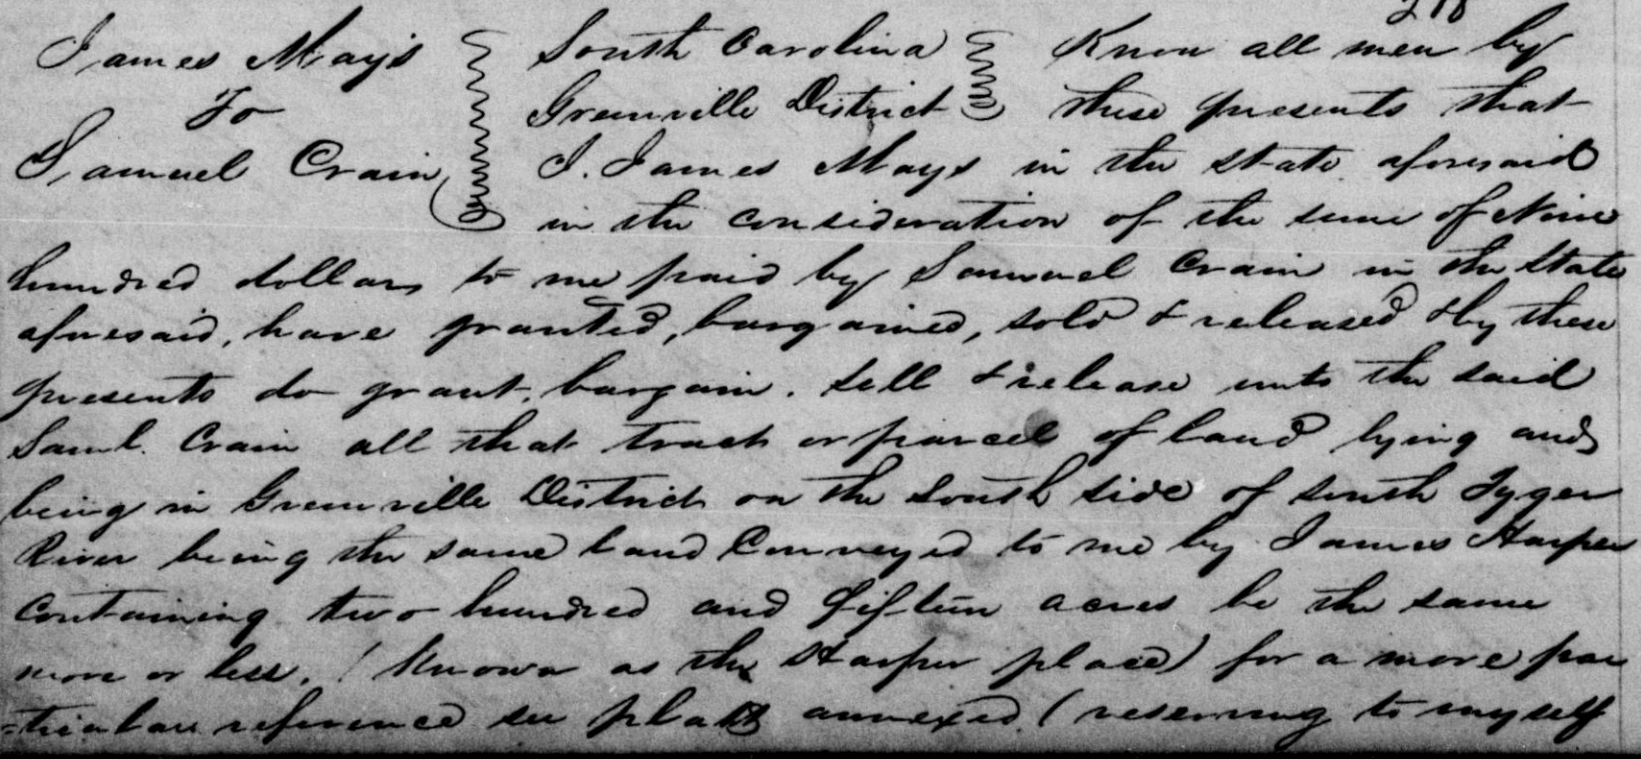 James Mays } South Carolina } Know all men by
To } Greenville District } these presents that
Samuel Crain } I. James Mays in the state aforesaid
in the consideration of the sume of Nine
hundred dollars to me paid by Samuel Crain in the State
aforesaid, have granted, bargained, sold & released & by these
presents do grant, bargain. sell & release unto the said
Saml. Crain all that track or parcel of land lying and
being in Greenville District on the South side of South Tyger
River being the same land Conveyed to me by James Harper
Containing two hundred and fifteen acres be the same
more or less. ( Known as the Harper place) for a more par
=ticular reference see platt annexed (reserving to myself